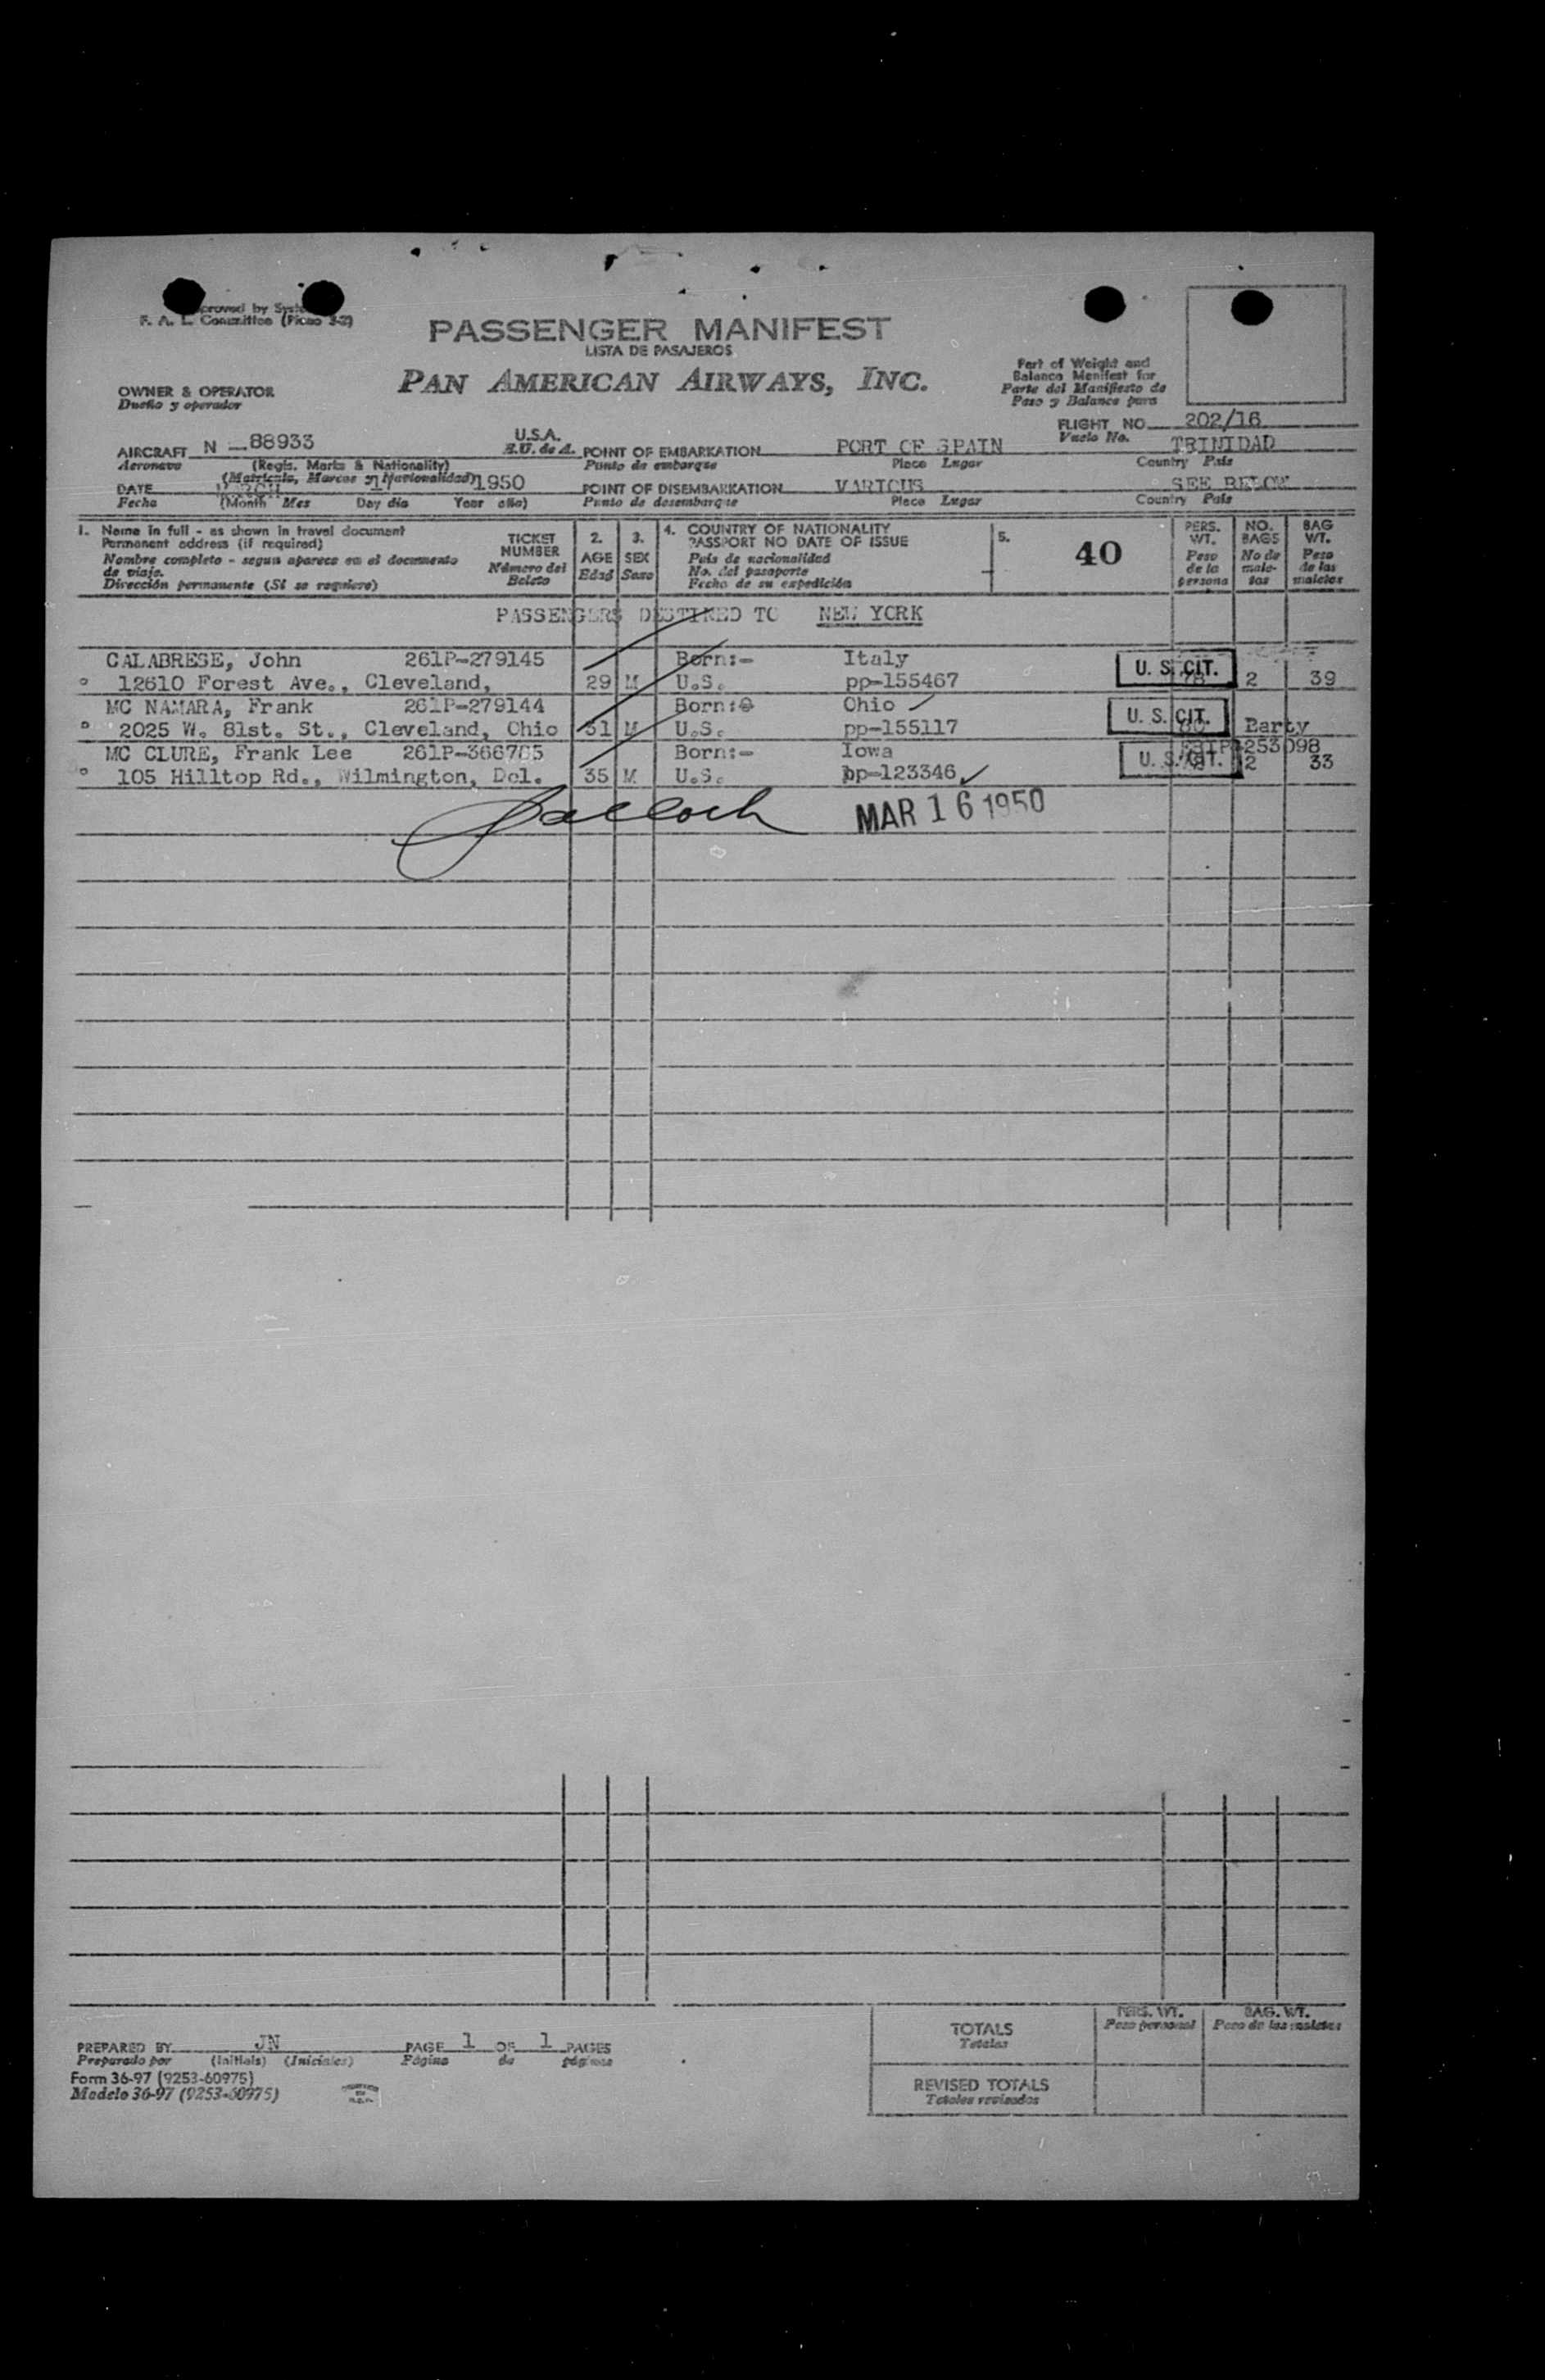 proved by Syst
F. A. L. Committee (Picao 3-2)
PASSENGER MANIFEST
LISTA DE PASAJEROS
PAN AMERICAN AIRWAYS, INC.
Part of Weight and
Balance Manifest for
Parte del Manifiesto de
Peso y Balance para
OWNER & OPERATOR
Dueño y operador
FLIGHT NO. 202/16
Vuelo No.
AIRCRAFT N -88933 U.S.A. POINT OF EMBARKATION PORT OF SPAIN TRINIDAD
Aeronave (Regis. Marks & Nationality) E.U. de A. Punto de embarque Place Lugar Country País
(Matrícula, Marcas y Nacionalidad)
DATE 1950 POINT OF DISEMBARKATION VARIOUS SEE BELOW
Fecha (Month Mes Day día Year año) Punto de desembarque Place Lugar Country País
1. Name in full - as shown in travel document
Permanent address (if required)
Nombre completo - segun aparece en el documento
de viaje.
Dirección permanente (Si se requiere)
TICKET
NUMBER
Número del
Boleto
2.
AGE
Edad
3.
SEX
Sexo
4. COUNTRY OF NATIONALITY
PASSPORT NO DATE OF ISSUE
País de nacionalidad
No. del pasaporte
Fecha de su expedición
5.
40
PERS.
WT.
Peso
de la
persona
NO.
BAGS
No de
male-
tas
BAG
WT.
Peso
de las
maletas
PASSENGERS DESTINED TO NEW YORK
CALABRESE, John 261P-279145 Born:- Italy
12610 Forest Ave., Cleveland, 29 M U.S. pp-155467 U. S. CIT. 2 39
MC NAMARA, Frank 261P-279144 Born: Ohio
2025 W. 81st. St., Cleveland, Ohio 31 M U.S. pp-155117 U. S. CIT. 80 Party
MC CLURE, Frank Lee 261P-366765 Born:- Iowa 253098
105 Hilltop Rd., Wilmington, Del. 35 M U.S. pp-123346 U. S. CIT. 2 33
MAR 16 1950
PREPARED BY JN PAGE 1 OF 1 PAGES
Preparado por (Initials) (Iniciales) Página de páginas
Form 36-97 (9253-60975)
Modelo 36-97 (9253-60975)
TOTALS
Totales
PERS. WT.
Peso personal
BAG. WT.
Peso de las maletas
REVISED TOTALS
Totales revisados